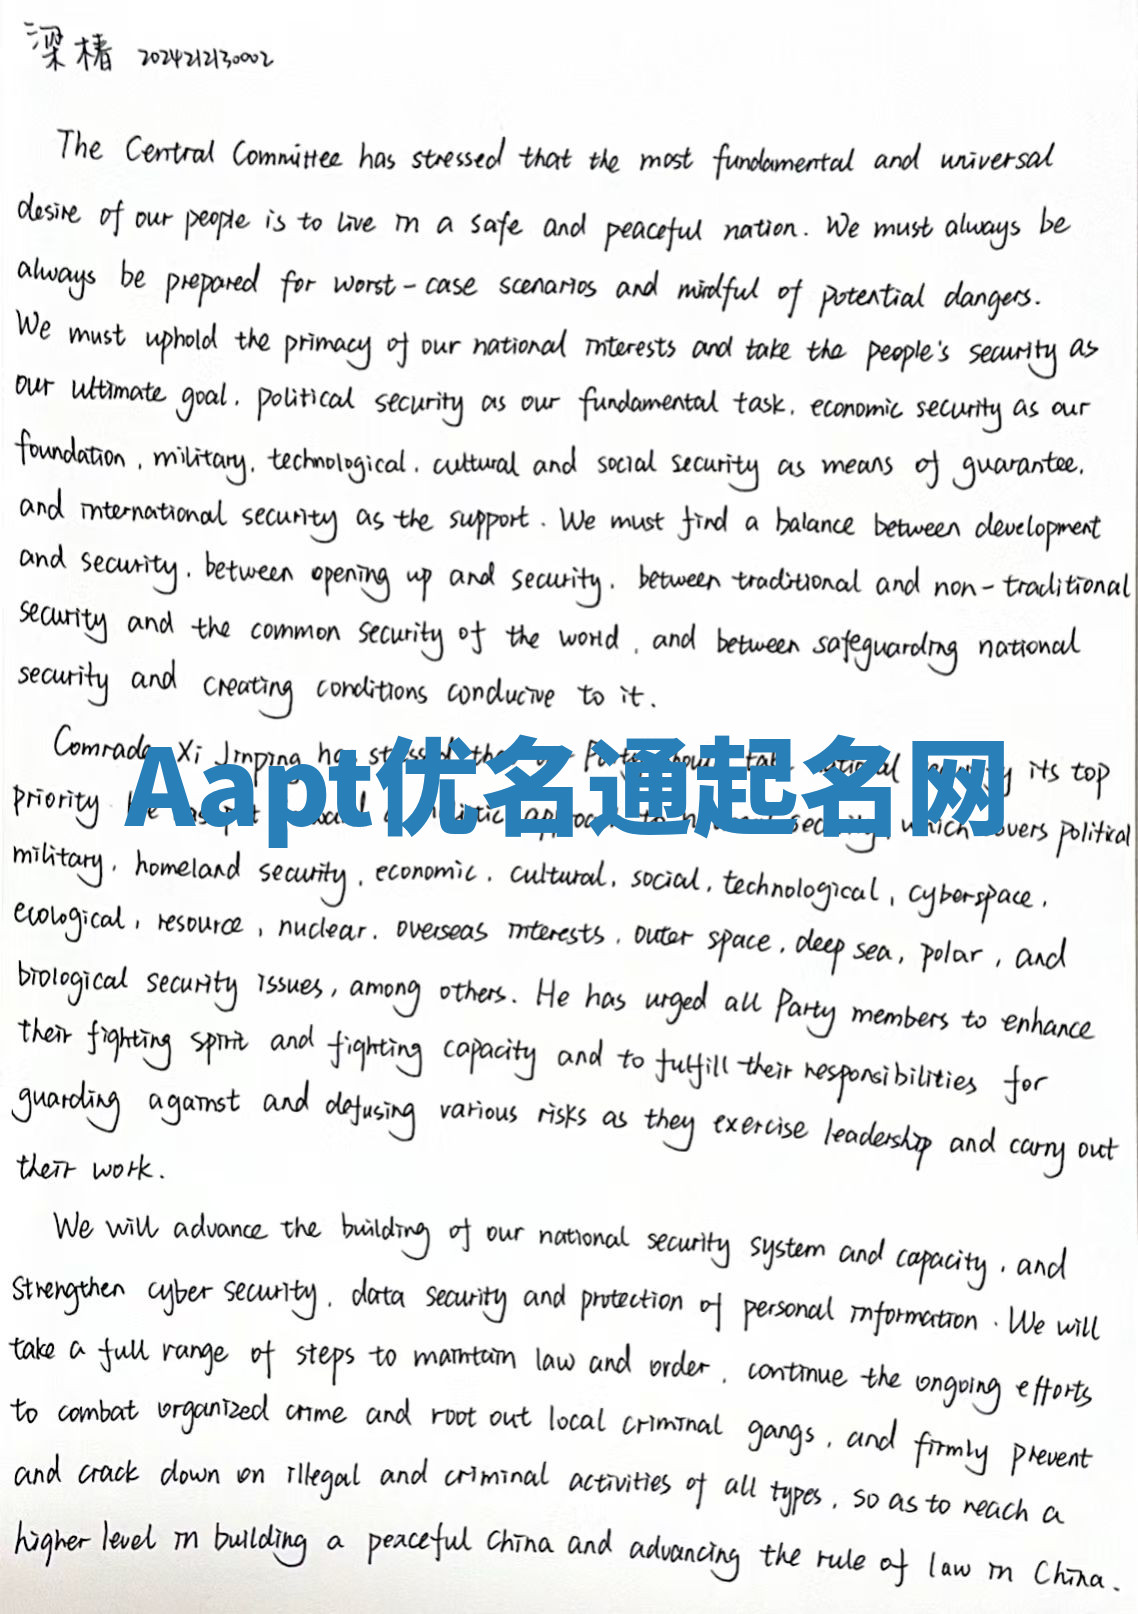 梁椿 2024212130002
The Central Committee has stressed that the most fundamental and universal
desire of our people is to live in a safe and peaceful nation. We must always be
always be prepared for worst-case scenarios and mindful of potential dangers.
We must uphold the primacy of our national interests and take the people's security as
our ultimate goal, political security as our fundamental task, economic security as our
foundation, military, technological, cultural and social security as means of guarantee,
and international security as the support. We must find a balance between development
and security, between opening up and security, between traditional and non-traditional
security and the common security of the world, and between safeguarding national
security and creating conditions conducive to it.
Comrade Xi Jinping has stressed its top
Aapt优名通起名网
priority which covers political
military, homeland security, economic, cultural, social, technological, cyberspace,
ecological, resource, nuclear, overseas interests, outer space, deep sea, polar, and
biological security issues, among others. He has urged all Party members to enhance
their fighting spirit and fighting capacity and to fulfill their responsibilities for
guarding against and defusing various risks as they exercise leadership and carry out
their work.
We will advance the building of our national security system and capacity, and
strengthen cyber security, data security and protection of personal information. We will
take a full range of steps to maintain law and order, continue the ongoing efforts
to combat organized crime and root out local criminal gangs, and firmly prevent
and crack down on illegal and criminal activities of all types, so as to reach a
higher level in building a peaceful China and advancing the rule of law in China.